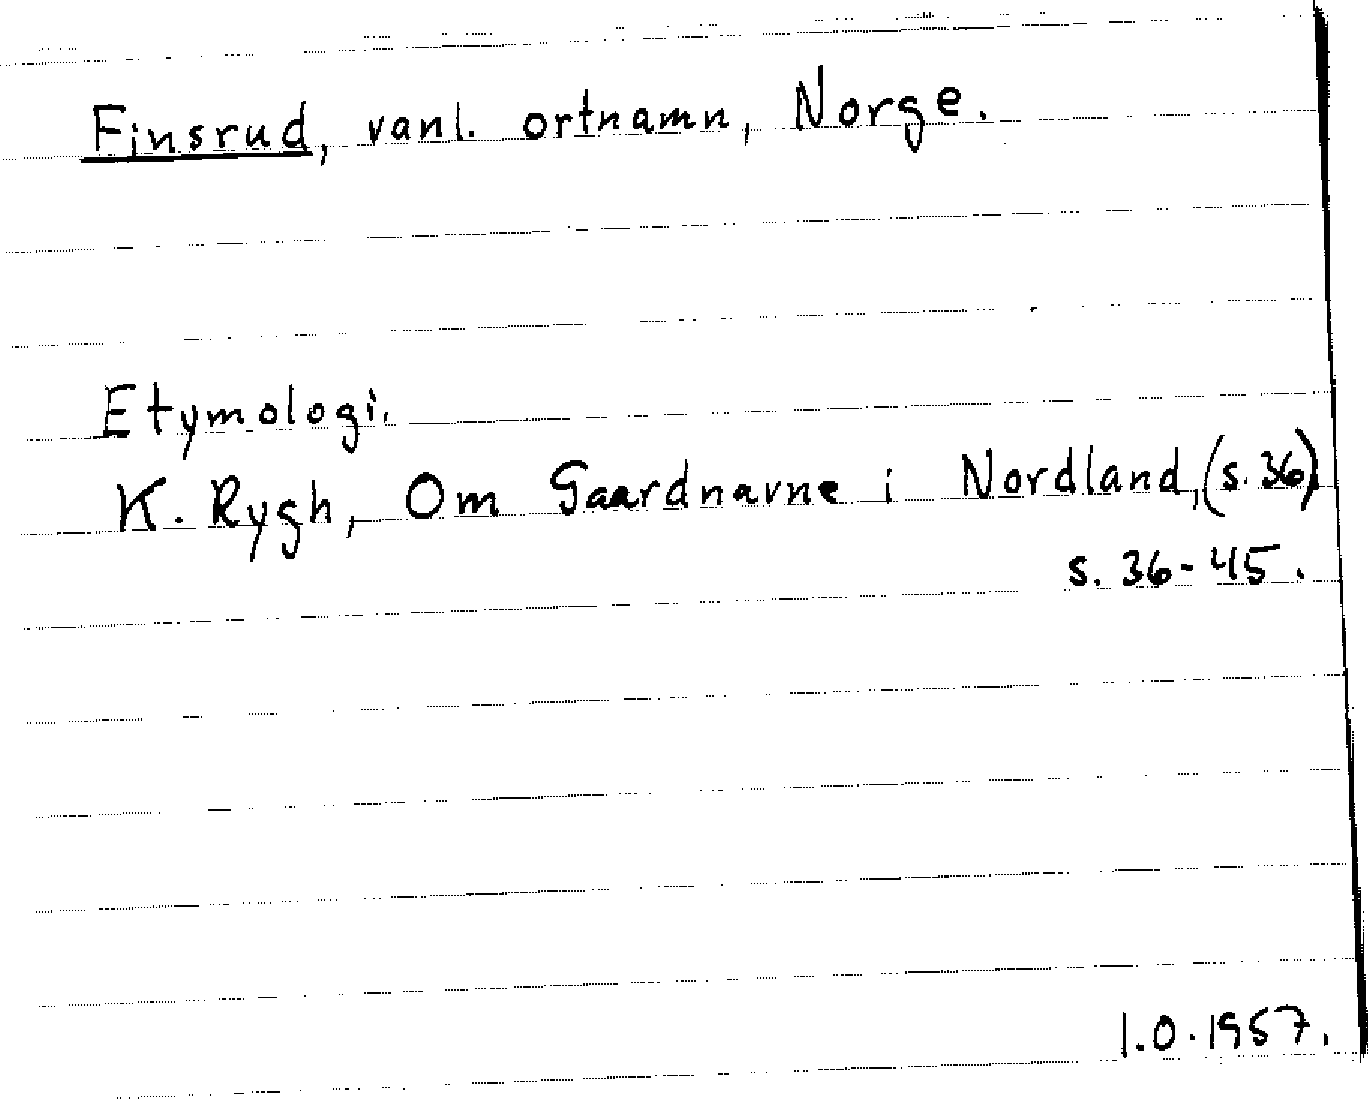 Finsrud, vanl. ortnamn, Norge.
Etymologi.
K. Rygh, Om Gaardnavne i Nordland, (s. 36)
s. 36-45.
I.O. 1957.